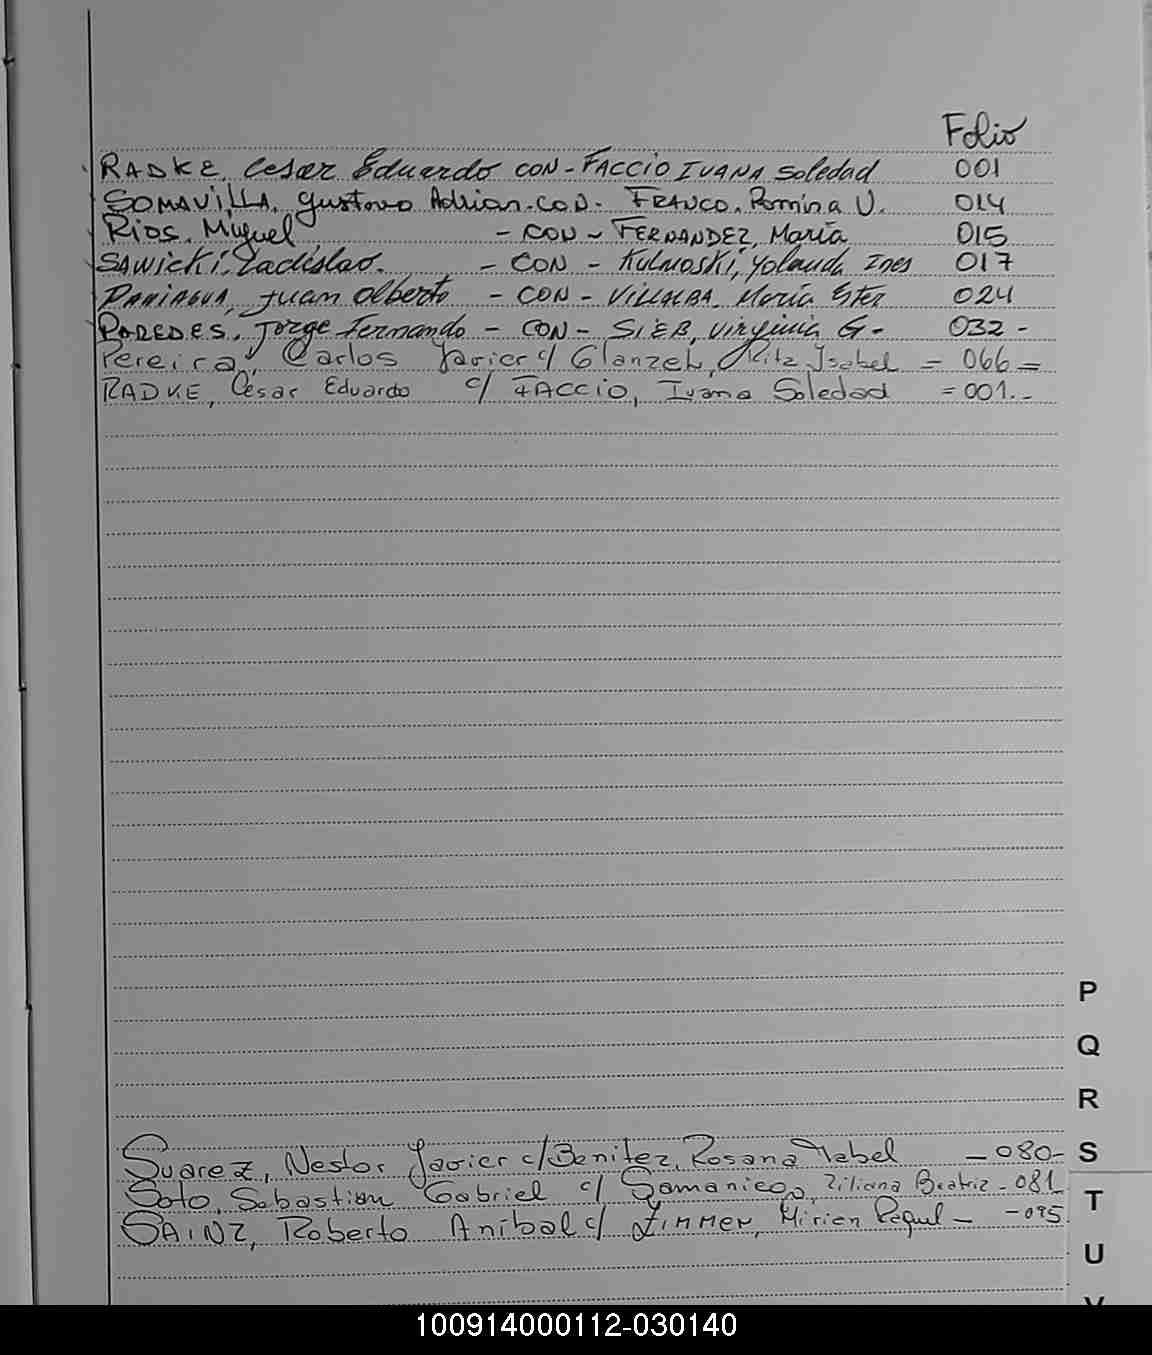 Folio
RADKE, Cesar Eduardo CON - FACCIO IVANA Soledad 001
SOMAVILLA, Gustavo Adrian - CON - FRANCO, Romina V. 014
Rios, Miguel - CON - FERNANDEZ, María 015
SAWICKI, Ladislao. - CON - KULMOSKI, Yolanda Ines 017
PANIAGUA, Juan Alberto - CON - VILLALBA, María Ester 024
PAREDES, Jorge Fernando - CON - SIEB, Virginia G - 032 -
Pereira, Carlos Javier c/ Glanzel, Rita Isabel = 066 =
RADKE, César Eduardo c/ FACCIO, Ivana Soledad = 001.-
P
Q
R
Suarez, Nestor Javier c/ Benitez, Rosana Isabel - 080 - S
Soto, Sebastian Gabriel c/ Liliana Beatriz - 081 T
SAINZ, Roberto Anibal c/ ZIMMER, Mirien Raquel - - 095
U
100914000112-030140